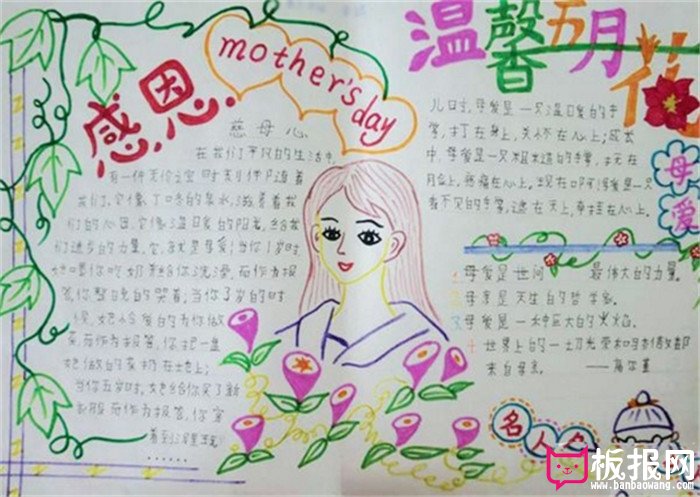 感恩
mother's day
慈母心
在我们平凡的生活中,
有一件无价之宝时刻伴随着
我们,它像丁冬的泉水,滋养着我
们的心田,它像温暖的阳光,给我
们进步的力量,它就是母爱!当你1岁时
她喂你吃奶并给你洗澡,而作为报
答,你整晚的哭着;当你3岁的时
候,她怜爱的为你做
菜,而作为报答,你把一盘
她做的菜扔在地上;
当你五岁时,她给你买了新
衣服,而作为报答,你穿
着到泥里玩
......
温馨五月花
母爱
儿时,母爱是一只温暖的手
掌,打在身上,关怀在心上;成长
中,母爱是一只粗糙的手掌,抚在
心上;现在
看不见的手掌,远在天上,牵挂在心上。
1 母爱是世间最伟大的力量。
2 母亲是天生的哲学家。
3 母爱是一种巨大的火焰。
4 世界上的一切光荣和
来自母亲。
——高尔基
名人名
板报网
www.banbaowang.com